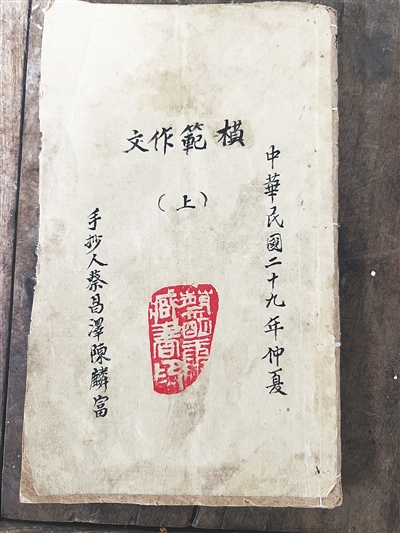 中華民國二十九年仲夏
模範作文
（上）
藏書印
手抄人蔡昌澤陳麟富